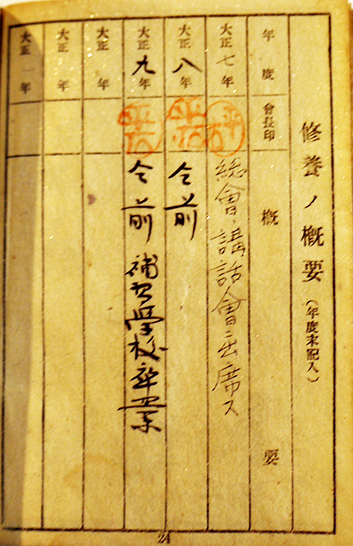 修養ノ概要(年度末記入)
年度 會長印 概要
大正七年 総會、講話會ニ出席ス
大正八年 仝前
大正九年 仝前 補習學校卒業
大正 年
大正 年
大正 年
24